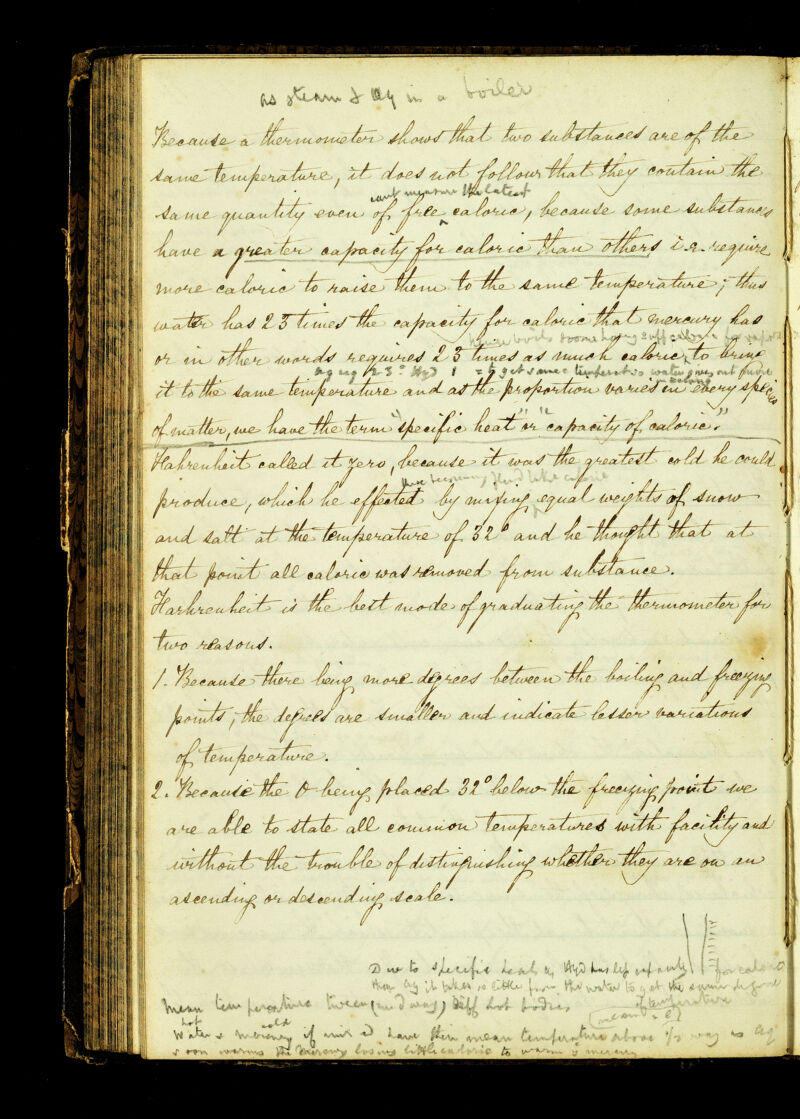 as steam & Aq in a boiler
Because a thermometer shows that two substances are of the
same temperature, it does not follow that they contain the
cant measure the latent
same quantity even of free caloric, because some substances
have a greater capacity for caloric than others i.e. require
more caloric to raise them to the same temperature; thus
water has 23 times the capacity for caloric that mercury has
or in other words requires 23 times as much caloric, to bring
23° Hyd 1 = to get same temperature water gives out more
it to the same temperature and as the proportion varies in every species
of matter, we have the term "specific heat" or "capacity of caloric."
Fahrenheit called it Zero, because it was the greatest cold he could
produce, which he effected by mixing equal weights of snow
and salt at the temperature of 32° and he thought that at
that point all caloric was removed from substance.
Harhrenheit is the best mode of graduating the thermometer for
two reasons.
1. Because there being more degrees between the boiling and freezing
points; the degrees are smaller and indicate lesser variations
of temperature.
2. Because the 0 being placed 32° below the freezing point we
are able to state all common temperatures with facility and
without the trouble of distinguishing whether they are on an
ascending or descending scale.
Due to specific heat Hyd has less capacity for caloric
than Aq it takes so little from the water to get the same degree
of temperature
mean temperature tween (mid way) diff hot bodies
hot cold
Water & mercury if mix'd have their mean temperature above ½ way as Aq
soon warms the mercury losing little caloric to warm mercury